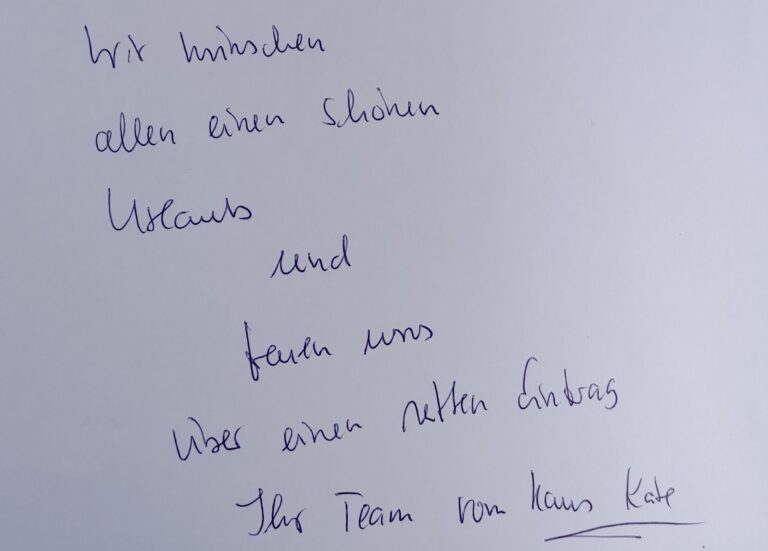 Wir wünschen
allen einen schönen
Urlaub
und
freuen uns
über einen netten Eintrag
Ihr Team vom Haus Kate